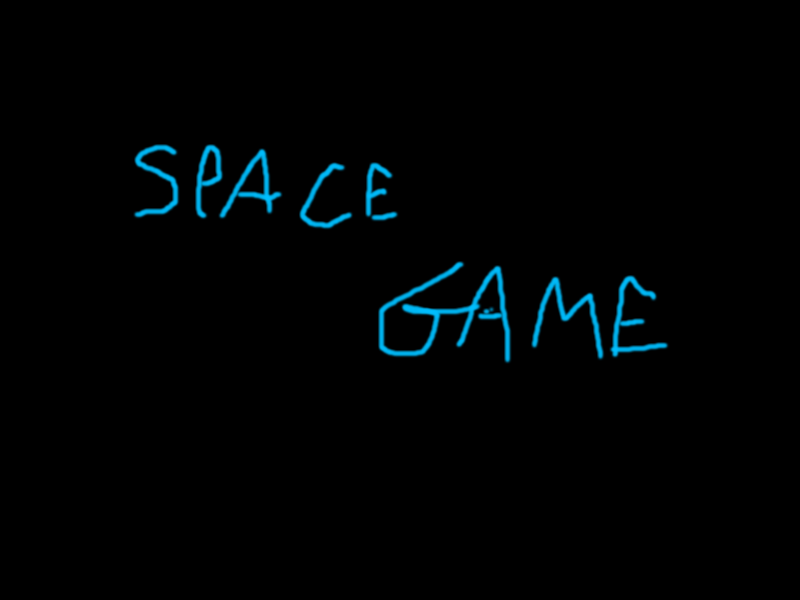 SPACE
GAME